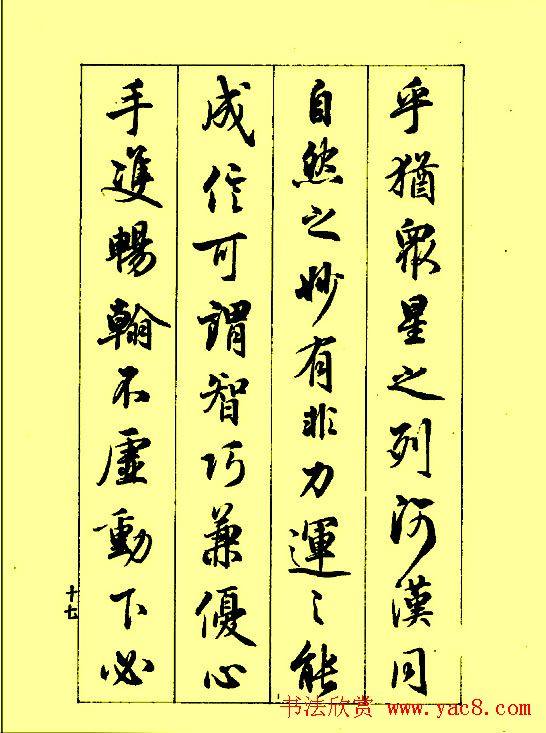 乎猶眾星之列河漢同
自然之妙有非力運之能
成信可謂智巧兼優心
手雙暢翰不虛動下必
十七
书法欣赏 www.yac8.com